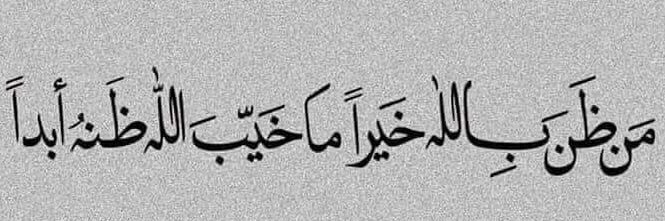 مَن ظَنَ بِاللّٰه خَيَراً مَا خَيَّبَ اللّٰه ظَنهُ أبداً